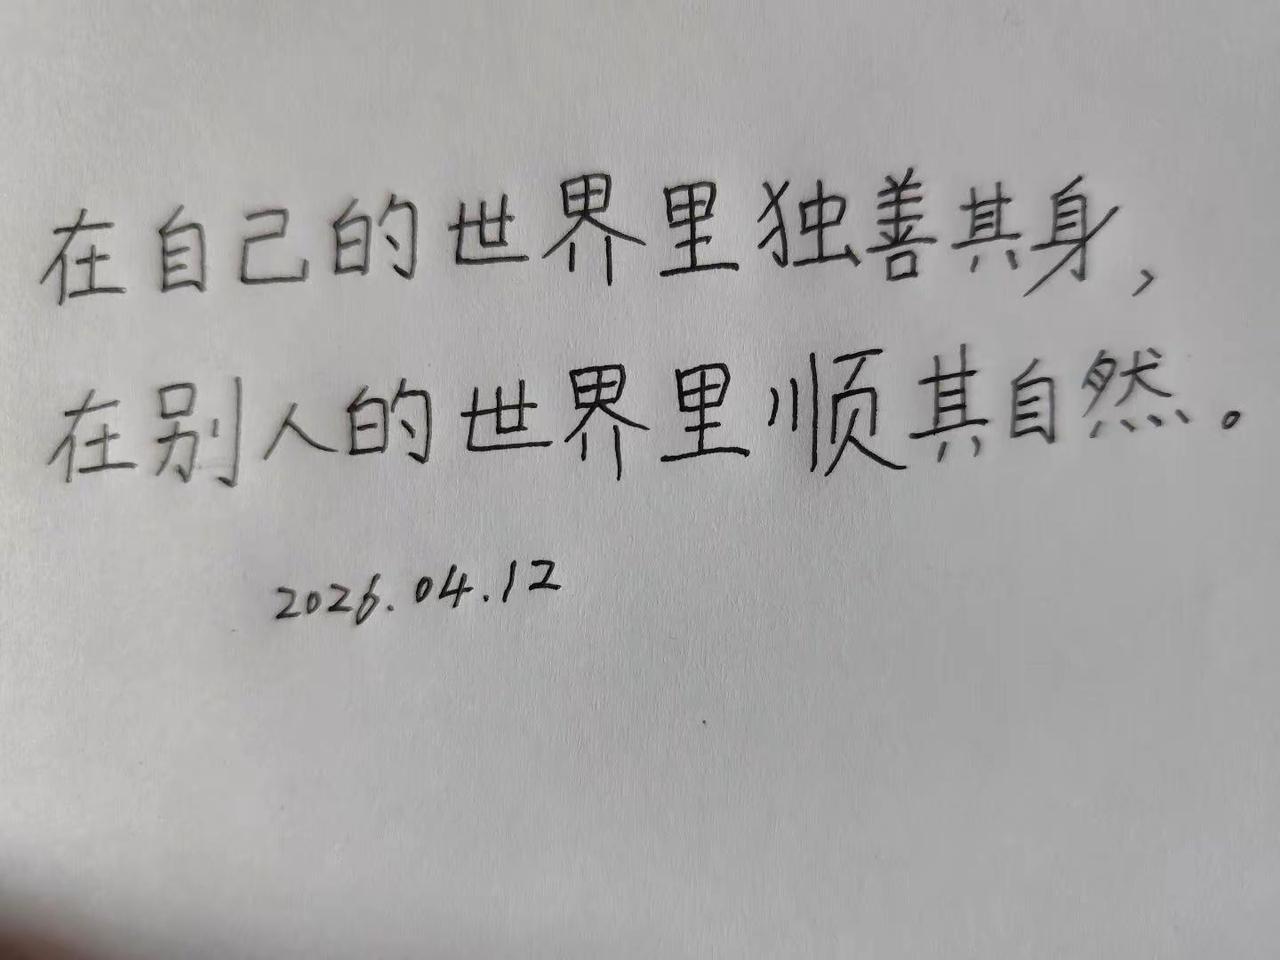 在自己的世界里独善其身，
在别人的世界里顺其自然。
2026.04.12